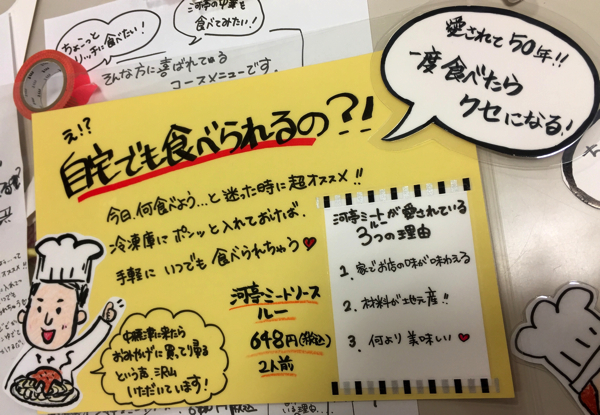 ちょーっと
リッチに食べたい!
河亭の中華を
食べてみたい!
そんな方に喜ばれてる
コースメニューです。
愛されて50年!!
一度食べたら
クセになる!
え!?
自宅でも食べられるの?!
今日、何食べよう…と迷った時に超オススメ!!
冷凍庫にポンッと入れておけば、
手軽にいつでも食べられちゃう♥
河亭ミートソース
ルー
648円(税込)
2人前
河亭ミートルーが愛されている
3つの理由
1. 家でお店の味が味わえる
2. 材料が地元産!!
3. 何より美味しい♥
中標津に来たら
おみやげに買って帰る
という声、沢山
いただいています!